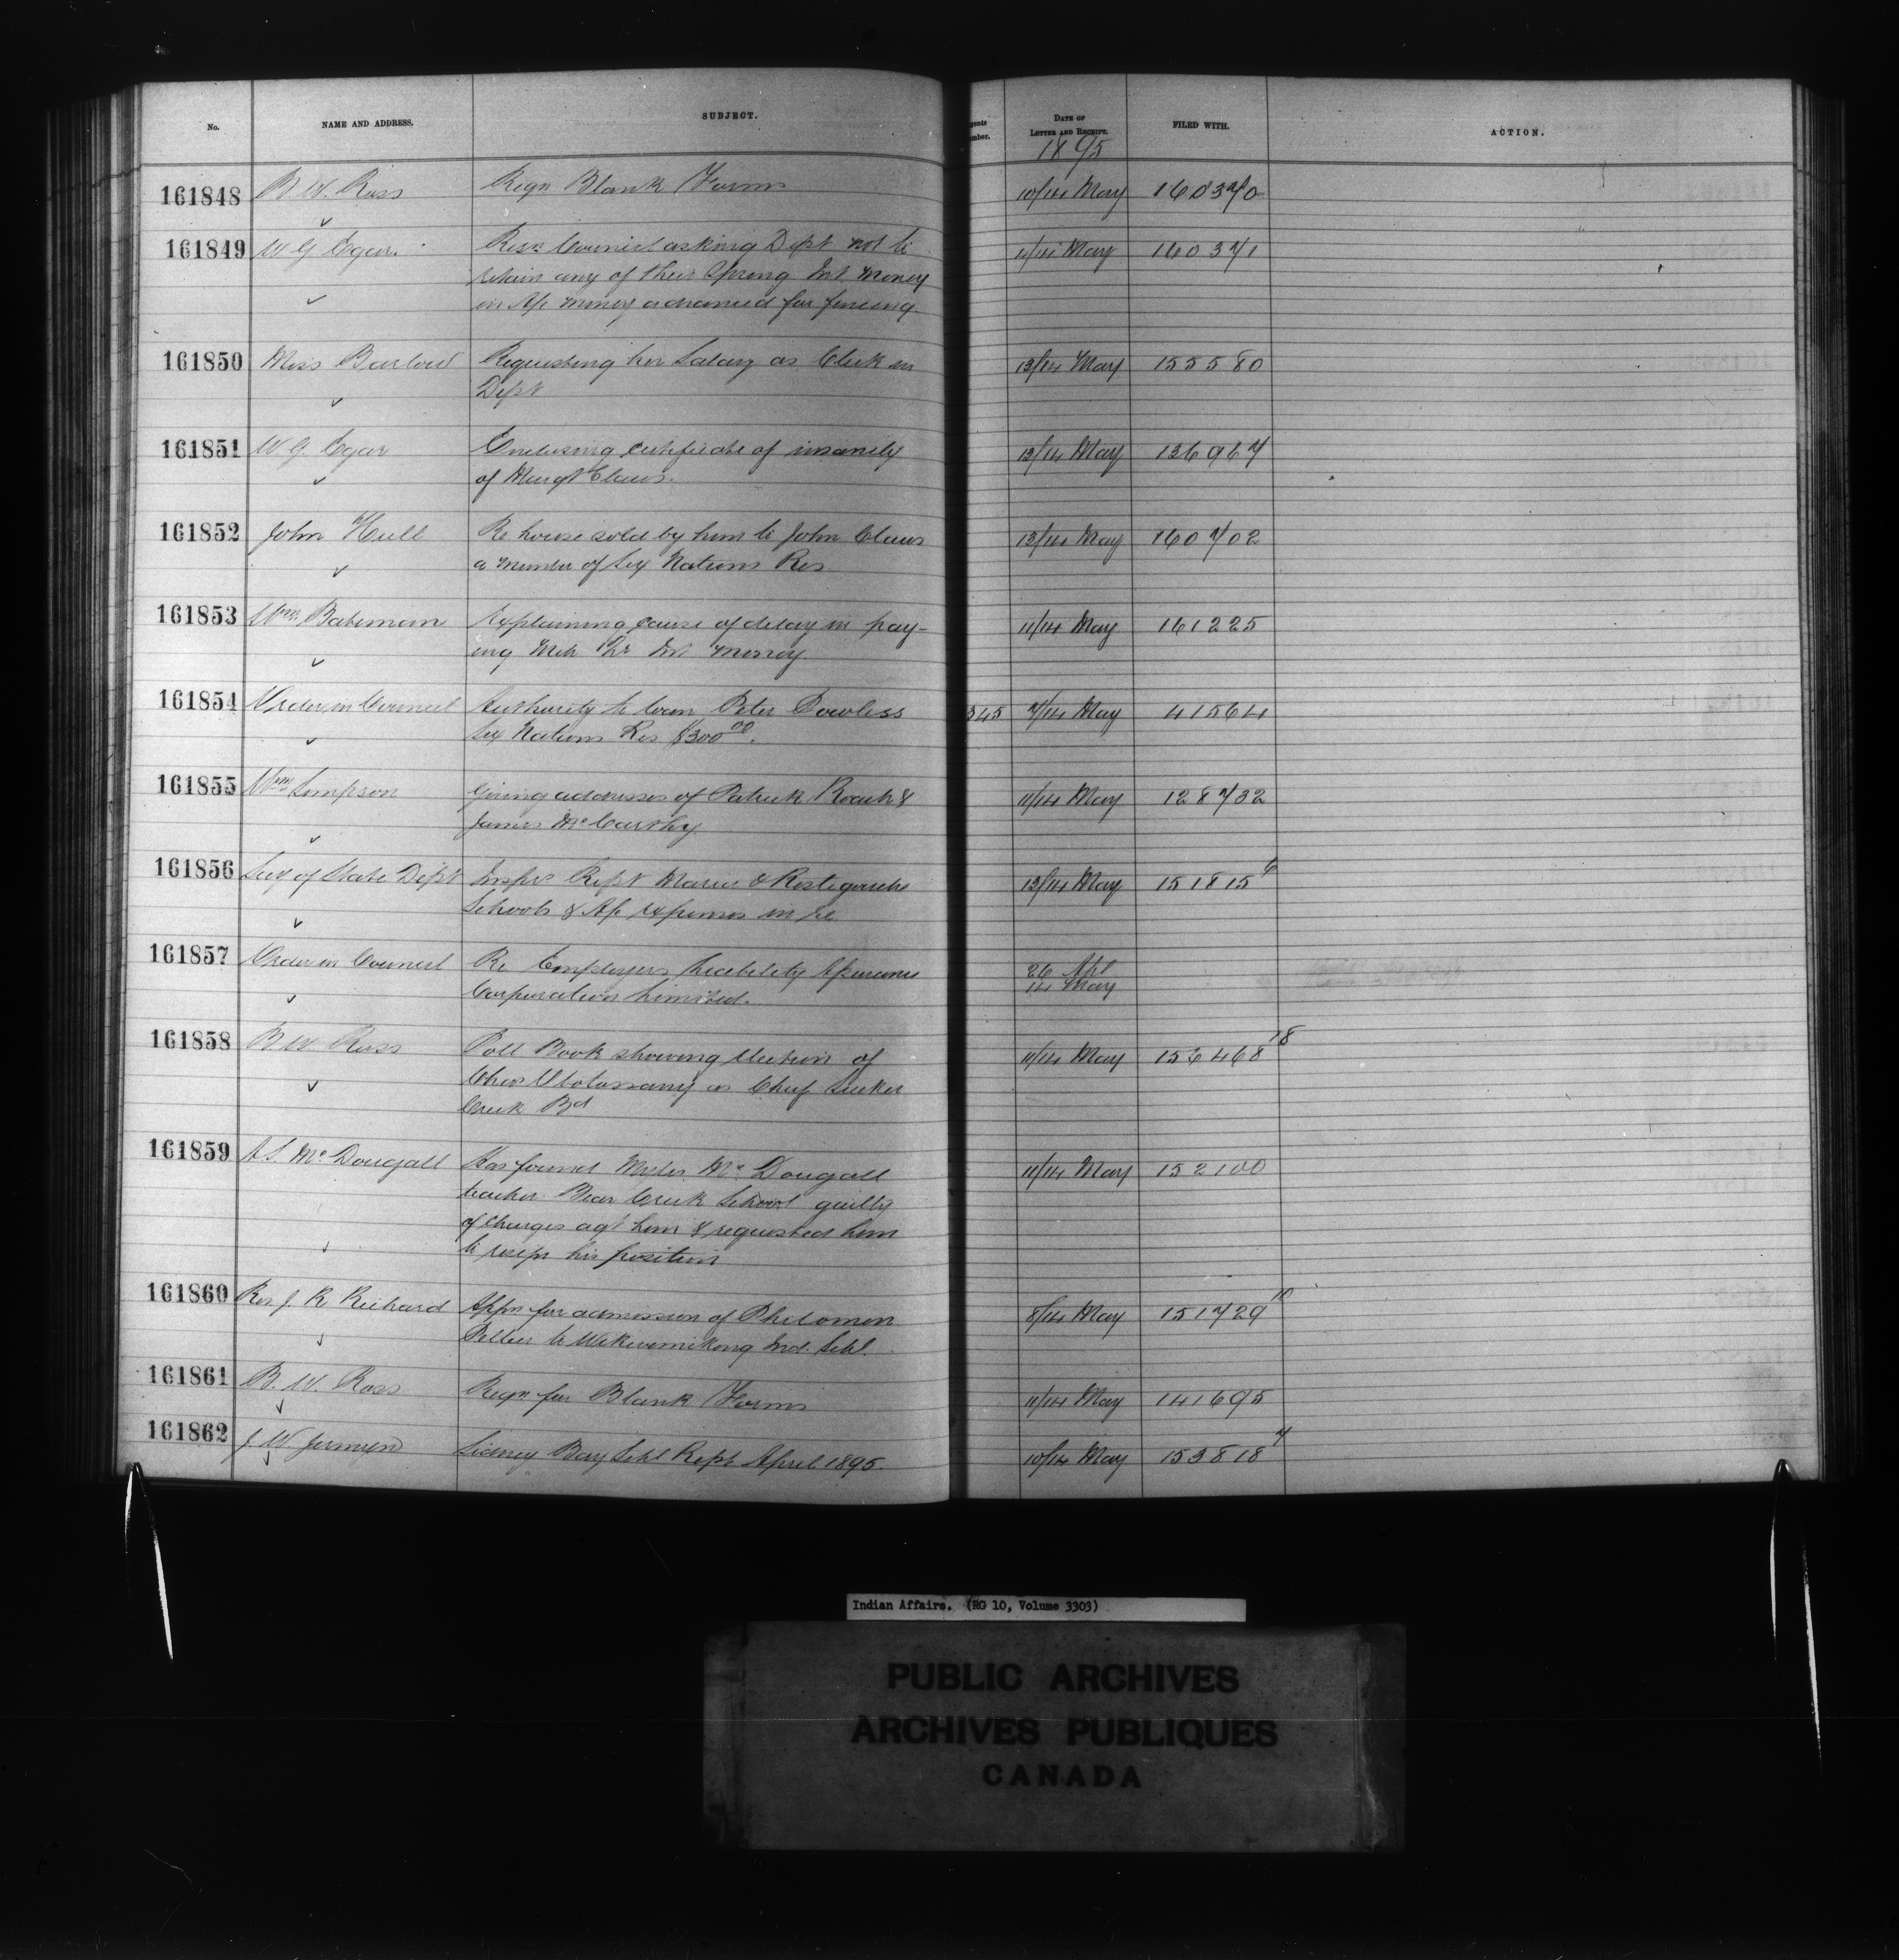 No. NAME AND ADDRESS. SUBJECT. DATE OF LETTER AND RECEIPT. FILED WITH. ACTION.
1895
161848 B. W. Ross Reqn Blank Forms 10/14 May 160370
161849 W G Egar Resn Council asking Dept not to 11/14 May 160371
retain any of their Spring Int Money
in A/c money advanced for fencing
161850 Miss Barlow Requesting her Salary as Clerk in 13/14 May 155580
Dept
161851 W. G. Egar Enclosing certificate of insanity 13/14 May 136967
of Margt Claus.
161852 John Hull Re house sold by him to John Claus 13/14 May 160702
a member of Six Nations Res
161853 Wm Bateman Explaining cause of delay in pay- 11/14 May 161225
ing Int money
161854 Order in Council Authority to loan Peter Powless 345 7/14 May 41564
Six Nations Res $300 00.
161855 Wm Simpson Giving addresses of Patrick Roach & 11/14 May 128732
James McCarthy
161856 Secy of State Dept Inspr's Rept Maria & Restigouche 13/14 May 151815 6
Schools & A/c expenses in re
161857 Order in Council Re Employers Liability Assurance 26 Apl
Corporation Limited. 14 May
161858 B. W. Ross Poll Book showing election of 11/14 May 156468 18
Chas as Chief Sucker
Creek Bd
161859 A S. McDougall Has found Myles McDougall 11/14 May 152100
teacher Bear Creek School guilty
of charges agt him & requested him
to resign his position
161860 Rev J. R. Richard Appn for admission of Philomen 8/14 May 151729 10
to Wikwemikong Ind. Schl.
161861 B. W. Ross Reqn for Blank Forms 11/14 May 141695
161862 J. W. Jermyn Sidney Bay Schl Rept April 1895. 10/14 May 153818 7
Indian Affairs. (RG 10, Volume 3303)
PUBLIC ARCHIVES
ARCHIVES PUBLIQUES
CANADA